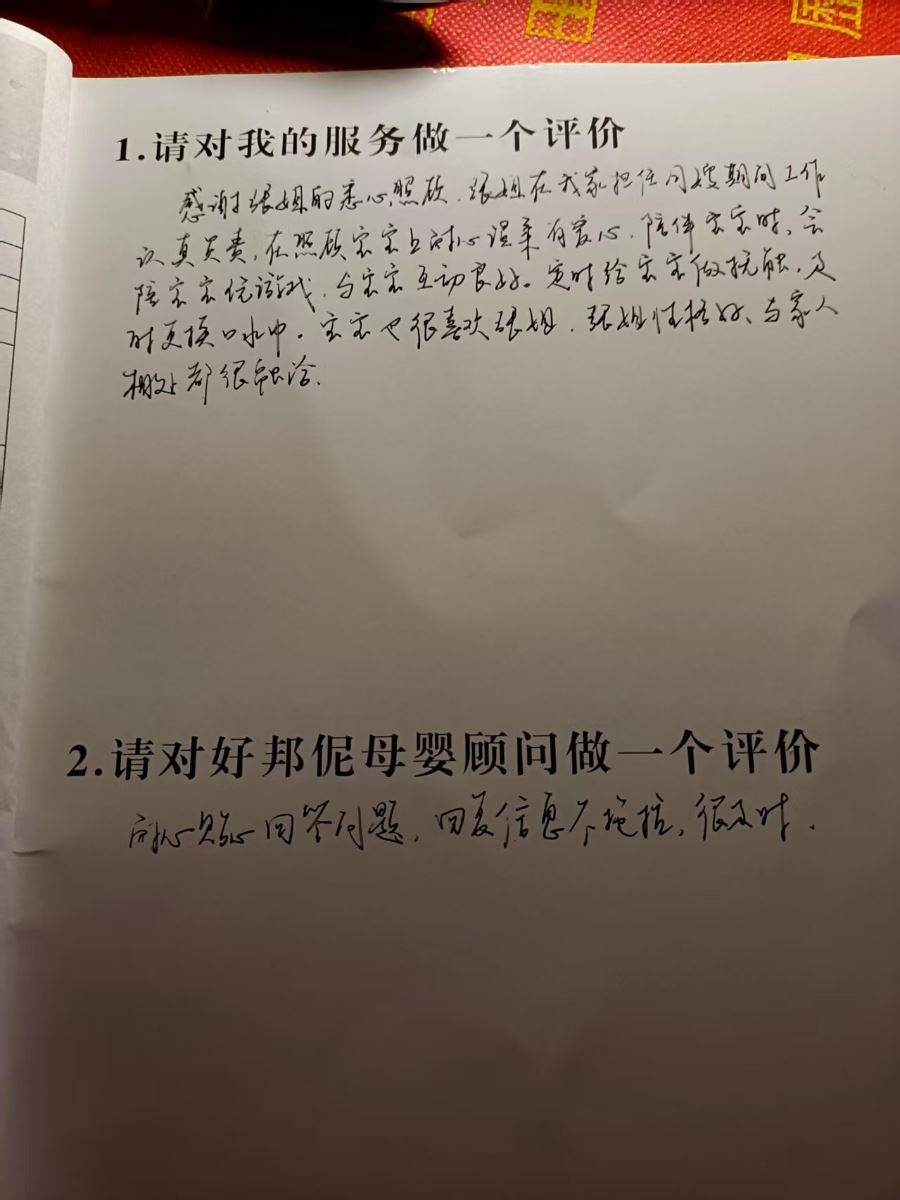 1.请对我的服务做一个评价
感谢张姐的悉心照顾，张姐在我家担任月嫂期间工作
认真负责，在照顾宝宝上耐心温柔有爱心，陪伴宝宝时，会
陪宝宝做游戏，与宝宝互动良好。定时给宝宝做抚触，及
时更换口水巾。宝宝也很喜欢张姐，张姐性格好，与家人
相处都很融洽.
2.请对好邦伲母婴顾问做一个评价
耐心贴心回答问题，回复信息不拖拉，很及时.